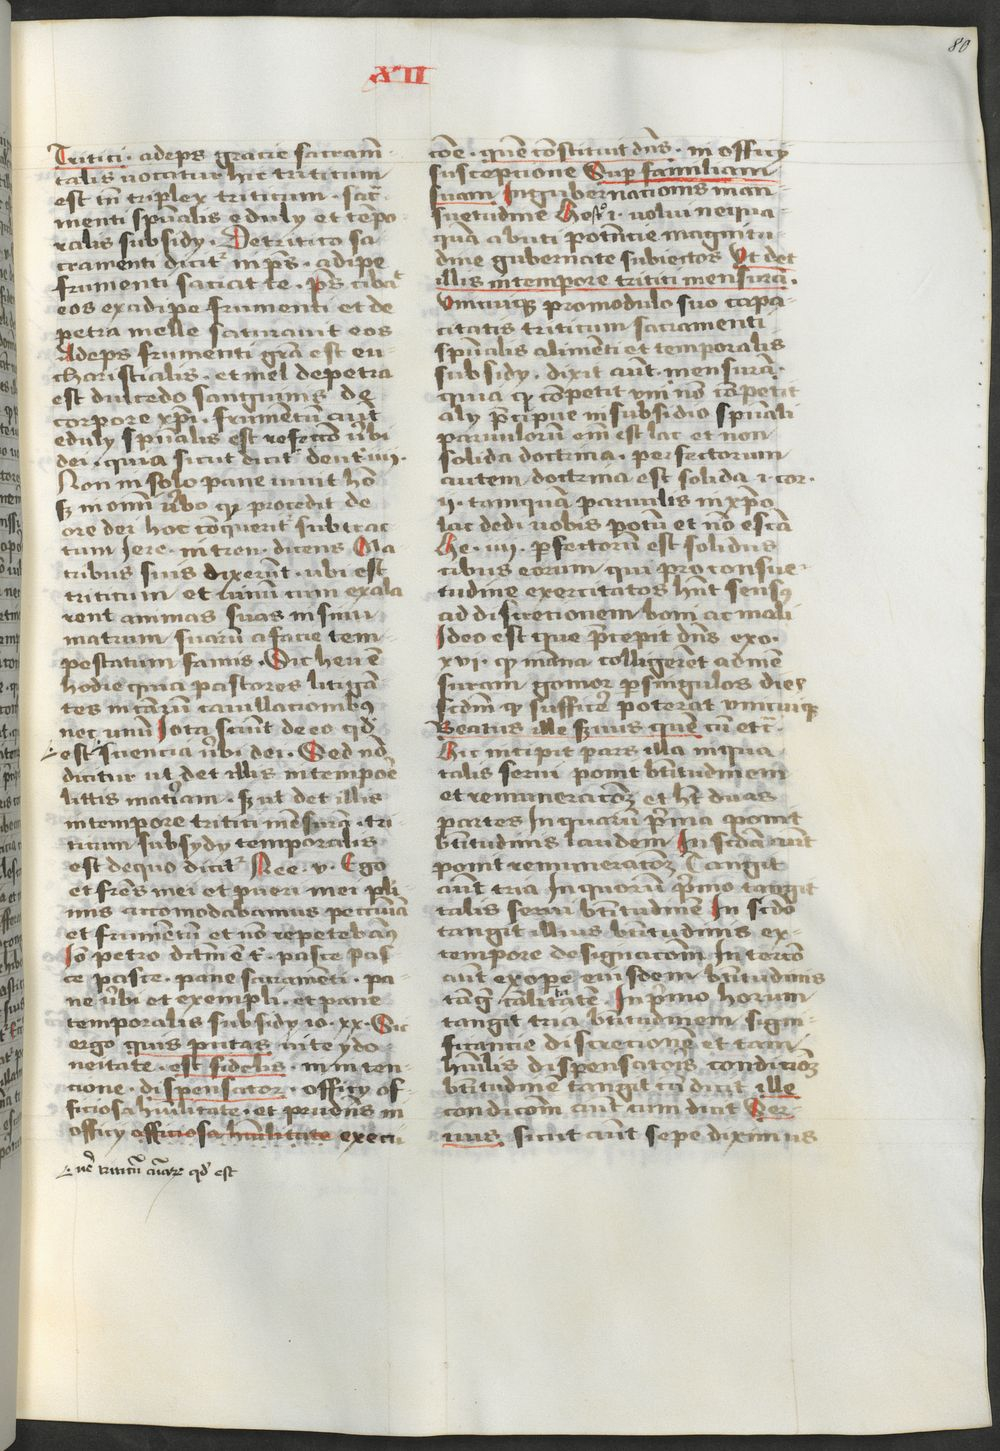 80
XII
Tritici · adeps gracie sacram̄
talis vocatur hic triticum
est in̄ triplex triticum · sac̄
menti spūalis eduly et tēpo
ralis subsidy · De tritico sa
cramenti dicit᷑ in ps̄ · adipe
frumenti saciat te · ps̄ cibāt
eos ex adipe frumenti et de
petra melle saturavit eos
Adeps frumenti grā est eu
charisticalis · et mel de petra
est dulcedo sanguinis de
corpore xp̄i · frumētū aūt
eduly spūalis est refectō ūbi
dei · quia sicut dicit᷑ deut iii ·
Non in solo pane vivit hō
sꝫ in omī ūbo qꝫ procedit de
ore dei hoc cōquerit᷑ subtrac
tum Jere · in tren · dicens Ma
tribus suis dixerūt · ubi est
triticum et vinū cum exala
rent animas suas in sinu
matrum suarū a facie tem
pestatum famis · Sic heu ē
hodie quia pastores litigā
tes in cārū cavillacionibꝰ
nec unū Iota sciūt de eo qd̄
est sciencia ūbi dei · Sed nō
dicitur ut det illis in tempoē
littis mat̄iam · sꝫ ut det illis
in tempore tritici mēsurā · tri
ticum subsydy temporalis
est de quo dicit᷑ Nee · v · Ego
et frēs mei et pueri mei pl̄i
mis accomodabamus peccuniā
et frumentū et nō repetebāꝰ
Iō petro dictm̄ ē t᷑ · pasce pas
ce pasce · pane sacramēti · pa
ne ūbi et exempli · et pane
temporalis subsidy io · xx · Sic
ergo quis putas in te ydo
neitate · est fidelis · in inten
cione · dispensator · officy of
ficiosa hūilitate · et prudēs in
officy officiosa hūilitate execu
· ūe triticū cūare qd̄ est
cōe · quē cōstituit dn̄s · in officy
susceptione Sup familiam
suam In gubernacionis man
suetudine Hesꝰ · i · volui nequa
quā abuti potēcie magnitu
dine gubernate subiectos Ut det
illis in tempore tritici mensurā ·
Unicuiqꝫ pro modulo suo capa
citatis triticum sacramenti
spūalis alimēti et temporalis
subsidy · dixit aūt · mensurā ·
quia qꝫ cōpetit uni nō cōpetit
aly p̄cipue in subsidio spūali
parvulorū em̄ est lac et non
solida doctrina · perfectorum
autem doctrina est solida i · cor ·
ii · tamquā parvulis in xp̄o
lac dedi vobis potū et nō escā
He · iiii · p̄fectorū est solidus
cibus eorum qui pro consue
tudine exercitatos hn̄t sensꝰ
ad discrecionem boni ac mali
Ideo est que p̄cepit dn̄s exo ·
xvi · qꝫ māna colligerēt ad mē
suram gomor p̄ singulos dies
scdm̄ qꝫ suffice᷑ poterat unicuiqꝫ
Beatus ille s̄vus quē cū etc̄ ·
Hic incipit pars illa in qua
talis servi ponit bt̄itudinem
et remuneracōꝫ et ht̄ duas
partes In quarū p̄ma ponit
bt̄itudinis laudem In scdā aūt
ponit remuneracōꝫ Tangit
aūt tria In quorū p̄mo tangit
talis servi bt̄itudinē In scdo
tangit illius bt̄itudinis ex
tempore designacōm In tercō
aūt ex ope᷑ eiusdem bt̄itudinis
tāgꝫ cālitatē · In p̄mo horum
tangit tria bt̄itudinem signi
ficantie discrecionē et tam
hūilis dispensatoīs condicōꝫ
bt̄itudinē tangit cū dicit ille
condicōm aūt cum dicit Ser
vus · sicut aūt sepe diximus